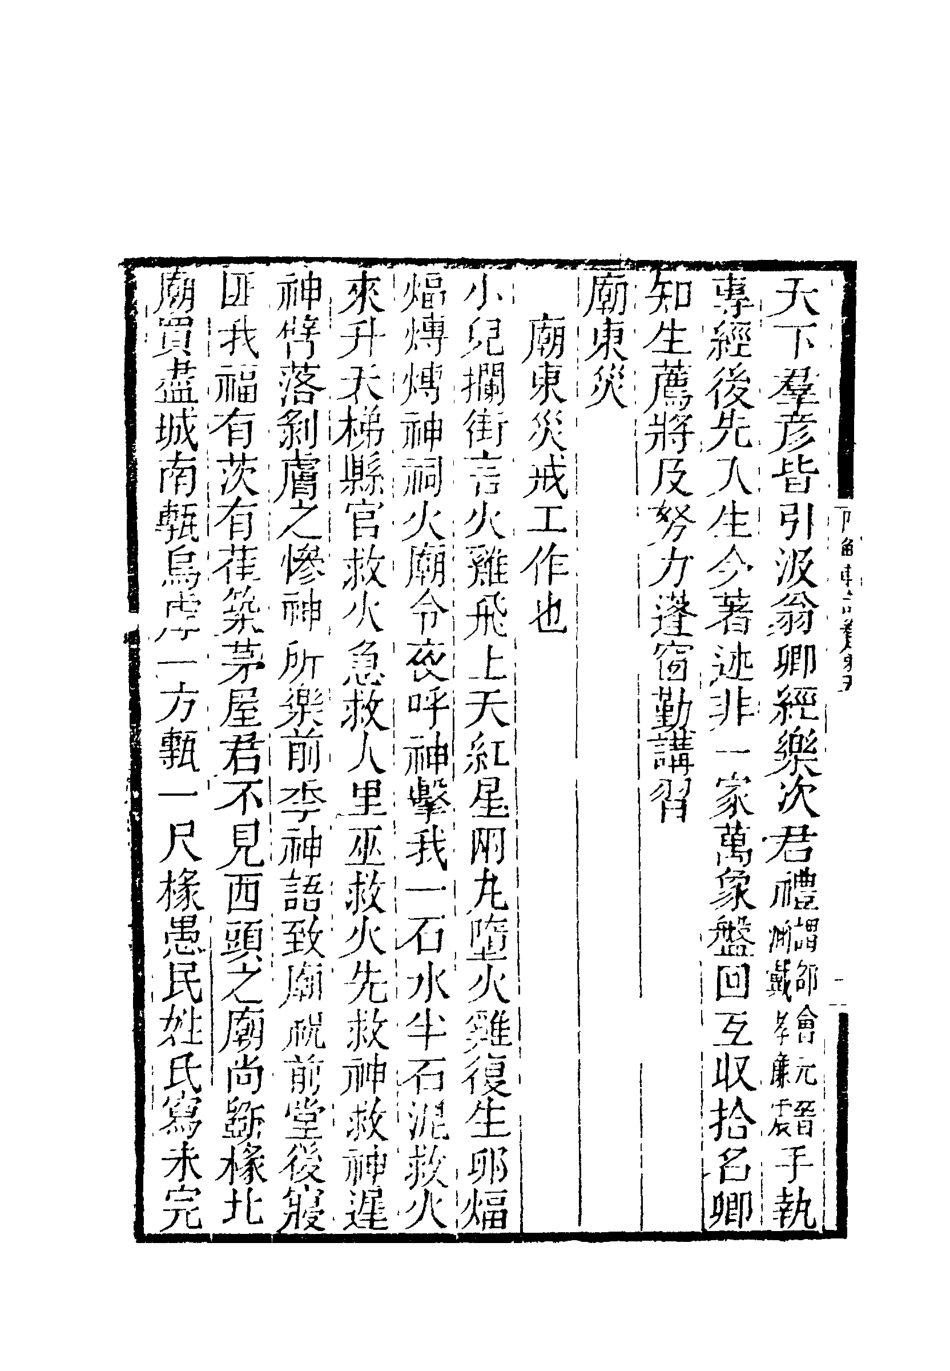 天下羣彥皆引汲翁卿經樂次君禮謂邵會元晉涵戴孝廉震手執
專經後先入生今著述非一家萬象盤回互収拾名卿
知生薦將及努力蓬窗勤講習
廟東災
廟東災戒工作也
小兒攔街言火雞飛上天紅星兩丸墮火雞復生卵煏
煏煿煿神祠火廟令夜呼神擊我一石水半石泥救火
來升天梯縣官救火急救人里巫救火先救神救神遲
神髆落剝膚之慘神所樂前季神語致廟祝前堂後寢
匪我福有茨有萑築茅屋君不見西頭之廟尚斲椽北
廟買盡城南甎烏虖一方甎一尺椽愚民姓氏寫未完